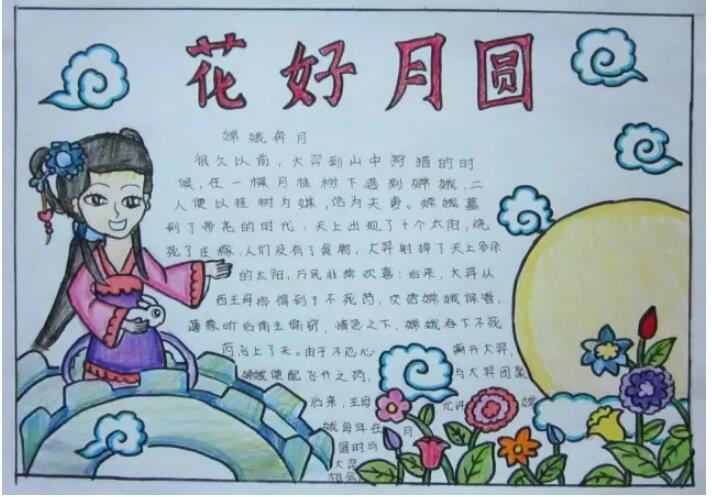 花好月圆
嫦娥奔月
很久以前，大羿到山中狩猎的时
候，在一棵月桂树下遇到嫦娥，二
人便以桂树为媒，结为夫妻。嫦娥
到了帝尧的时代，天上出现了十个太阳，烧
死了庄稼，人们没有了食物，大羿射掉了天上多余
的太阳，万民非常欢喜！后来，大羿从
西王母那得到了不死药，交给嫦娥保管，
逢蒙听后前去偷窃，情急之下，嫦娥吞下不死
药飞上了天。由于不忍心 离开大羿，
嫦娥便配飞升之药， 与大羿团聚
后来，王母 允许 嫦
娥每年在 月
圆时与
大羿
相会